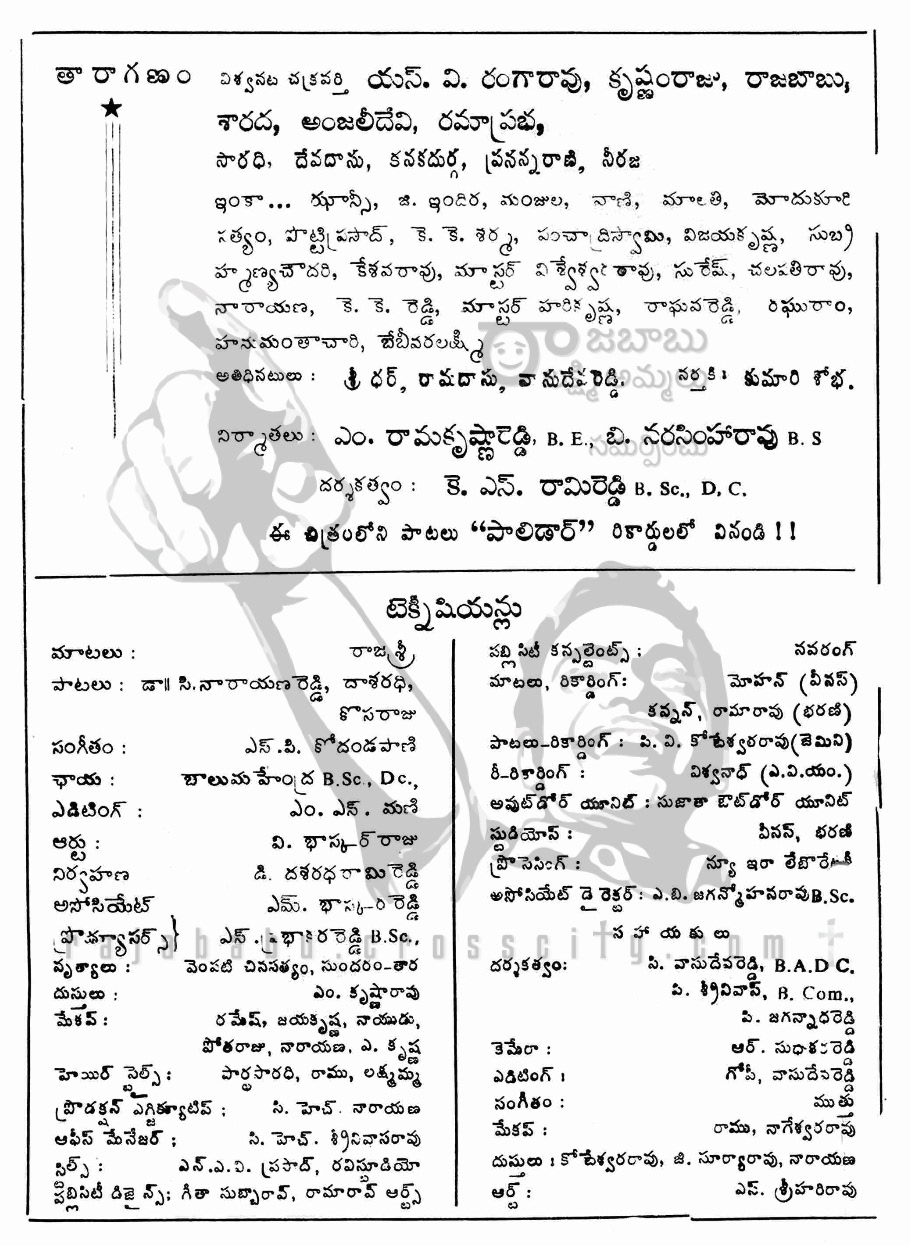 తారాగణం విశ్వనట చక్రవర్తి యస్. వి. రంగారావు, కృష్ణంరాజు, రాజబాబు,
శారద, అంజలీదేవి, రమాప్రభ,
సారధి, దేవదాసు, కనకదుర్గ, ప్రసన్నరాణి, నీరజ
ఇంకా... ఝాన్సీ, జి. ఇందిర, మంజుల, నాణి, మాలతి, మోదుకూరి
సత్యం, పొట్టిప్రసాద్, కె. కె. శర్మ, పంచాద్రిస్వామి, విజయకృష్ణ, సుబ్ర
హ్మణ్యచౌదరి, కేశవరావు, మాస్టర్ విశ్వేశ్వరరావు, సురేష్, చలపతిరావు,
నారాయణ, కె. కె. రెడ్డి, మాస్టర్ హరికృష్ణ, రాఘవరెడ్డి, రఘురాం,
హనుమంతాచారి, బేబీవరలక్ష్మి
అతిధినటులు : శ్రీధర్, రామదాసు, వాసుదేవరెడ్డి. నర్తకి: కుమారి శోభ.
నిర్మాతలు : ఎం. రామకృష్ణారెడ్డి, B. E., బి. నరసింహారావు B. S
దర్శకత్వం : కె. ఎస్. రామిరెడ్డి B. Sc., D. C.
ఈ చిత్రంలోని పాటలు “పాలిడార్” రికార్డులలో వినండి !!
రాజబాబు
లక్ష్మిఅమ్మలు
సమర్పించు
టెక్నీషియన్లు
మాటలు : రాజశ్రీ
పాటలు : డా॥ సి.నారాయణరెడ్డి, దాశరధి,
కొసరాజు
సంగీతం : ఎస్.పి. కోదండపాణి
ఛాయ : బాలుమహేంద్ర B.Sc., Dc.,
ఎడిటింగ్ : ఎం. ఎస్. మణి
ఆర్టు : వి. భాస్కర్ రాజు
నిర్వహణ డి. దశరధరామిరెడ్డి
అసోసియేట్ ఎమ్. భాస్కరరెడ్డి
ప్రొడ్యూసర్స్} ఎస్. ప్రభాకరరెడ్డి B.Sc.,
నృత్యాలు : వెంపటి చినసత్యం, సుందరం-తార
దుస్తులు : ఎం. కృష్ణారావు
మేకప్ : రమేష్, జయకృష్ణ, నాయుడు,
పోతరాజు, నారాయణ, ఎ. కృష్ణ
హెయిర్ స్టైల్స్ : పార్థసారధి, రాము, లక్ష్మమ్మ
ప్రొడక్షన్ ఎగ్జిక్యూటివ్ ; సి. హెచ్. నారాయణ
ఆఫీస్ మేనేజర్ ; సి. హెచ్. శ్రీనివాసరావు
స్టిల్స్ : ఎన్.ఎ.వి. ప్రసాద్, రవిస్టూడియో
పబ్లిసిటీ డిజైన్స్; గీతా సుబ్బారావ్, రామారావ్ ఆర్ట్స్
పబ్లిసిటీ కన్సల్టెంట్స్ : నవరంగ్
మాటలు, రికార్డింగ్: మోహన్ (వీనస్)
కన్నన్, రామారావు (భరణి)
పాటలు-రికార్డింగ్ : పి. వి. కోటేశ్వరరావు(జెమిని)
రీ-రికార్డింగ్ : విశ్వనాధ్ (ఎ.వి.యం.)
అవుట్‌డోర్ యూనిట్ : సుజాతా ఔట్‌డోర్ యూనిట్
స్టుడియోస్ : వీనస్, భరణి
ప్రొసెసింగ్ : న్యూ ఇరా లేబొరేటరీ
అసోసియేట్ డైరెక్టర్: ఎ.బి. జగన్మోహనరావుB.Sc.
సహాయకులు
దర్శకత్వం: సి. వాసుదేవరెడ్డి, B.A.D C.
పి. శ్రీనివాస్, B. Com.,
పి. జగన్నాధరెడ్డి
కెమేరా : ఆర్. సుధాకరరెడ్డి
ఎడిటింగ్ : గోపి, వాసుదేవరెడ్డి
సంగీతం : ముత్తు
మేకప్ : రాము, నాగేశ్వరరావు
దుస్తులు : కోటేశ్వరరావు, జి. సూర్యారావు, నారాయణ
ఆర్ట్ : ఎస్. శ్రీహరిరావు
rajababu.crosscity.com